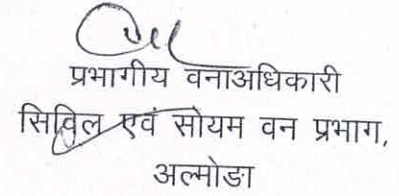 प्रभागीय वनाअधिकारी
सिविल एवं सोयम वन प्रभाग,
अल्मोङा